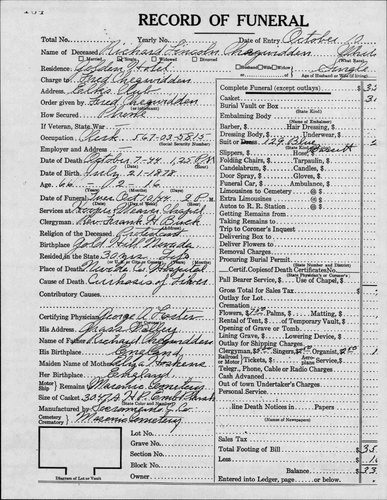 RECORD OF FUNERAL
Total No.
Yearly No.
Date of Entry October 10
Name of Deceased Richard Lincoln Chegwidden
Married Single Widowed Divorced
Residence Golden Hotel
Charge to Fred Chegwidden
Address
Order given by Fred Chegwidden
How Secured Phone
If Veteran, State War
Occupation Clerk. 567-03-5815
(Social Security Number)
Employer and Address
Date of Death October 7-44 1,25 P M
Date of Birth July 21-1878
Age 66 2 16
Date of Funeral Tues Oct 10/44 2 P M
Services at
Clergyman Rev. Frank H. Buck
Religion of the Deceased Protestant
Birthplace Gold Hill Nevada
Resided in the State 30 yrs
Place of Death Nevada Co Hospital
Cause of Death Cirrhosis of Liver
Contributory Causes
Certifying Physician George A. Foster
His Address Grass Valley
Name of Father Richard Chegwidden
His Birthplace England
Maiden Name of Mother Eliza Hoskins
Her Birthplace England
Motor Ship Remains Masonic Cemetery
Size of Casket
(State Color and Number)
Manufactured by Sacramento C. Co.
Cemetery Crematory Masonic Cemetery
Lot No.
Grave No.
Section No.
Block No.
Owner
Diagram of Lot or Vault
White
Single
Age of Husband or Wife
Complete Funeral (except outlays) $
Casket
Burial Vault or Box
(State Kind)
Embalming Body
Barber, Hair Dressing,
Dressing Body, Underwear,
Suit or Dress, 124 Blue
Slippers, Hose,
Folding Chairs, Tarpaulin,
Candelabrum, Candles,
Door Spray, Gloves,
Funeral Car, Ambulance,
Limousines to Cemetery @
Extra Limousines @
Autos to R. R. Station @
Getting Remains
Taking Remains to
Trip to Coroner's Inquest
Delivering Box to
Deliver Flowers to
Removal Charges
Procuring Burial Permit
(State Number and District)
Certif. Copies of Death Certificate No.
(State Physician's or Coroner's)
Pall Bearer Service, Use of Chapel,
Gross Total for Sales Tax
Outlay for Lot
Cremation
Flowers, Palms, Matting,
Rental of Tent, of Temporary Vault,
Opening of Grave or Tomb
Lining Grave, Lowering Device,
Outlay for Shipping Charges
Clergyman, Singers, Organist,
Railroad Motor Tickets, Aeroplane Service,
Telegr., Phone, Cable or Radio Charges
Cash Advanced
Out of town Undertaker's Charges
Personal Service
line Death Notices in Papers
(Names of Newspapers)
Sales Tax
Total Footing of Bill $
Less
Balance $
Entered into Ledger, page or below.